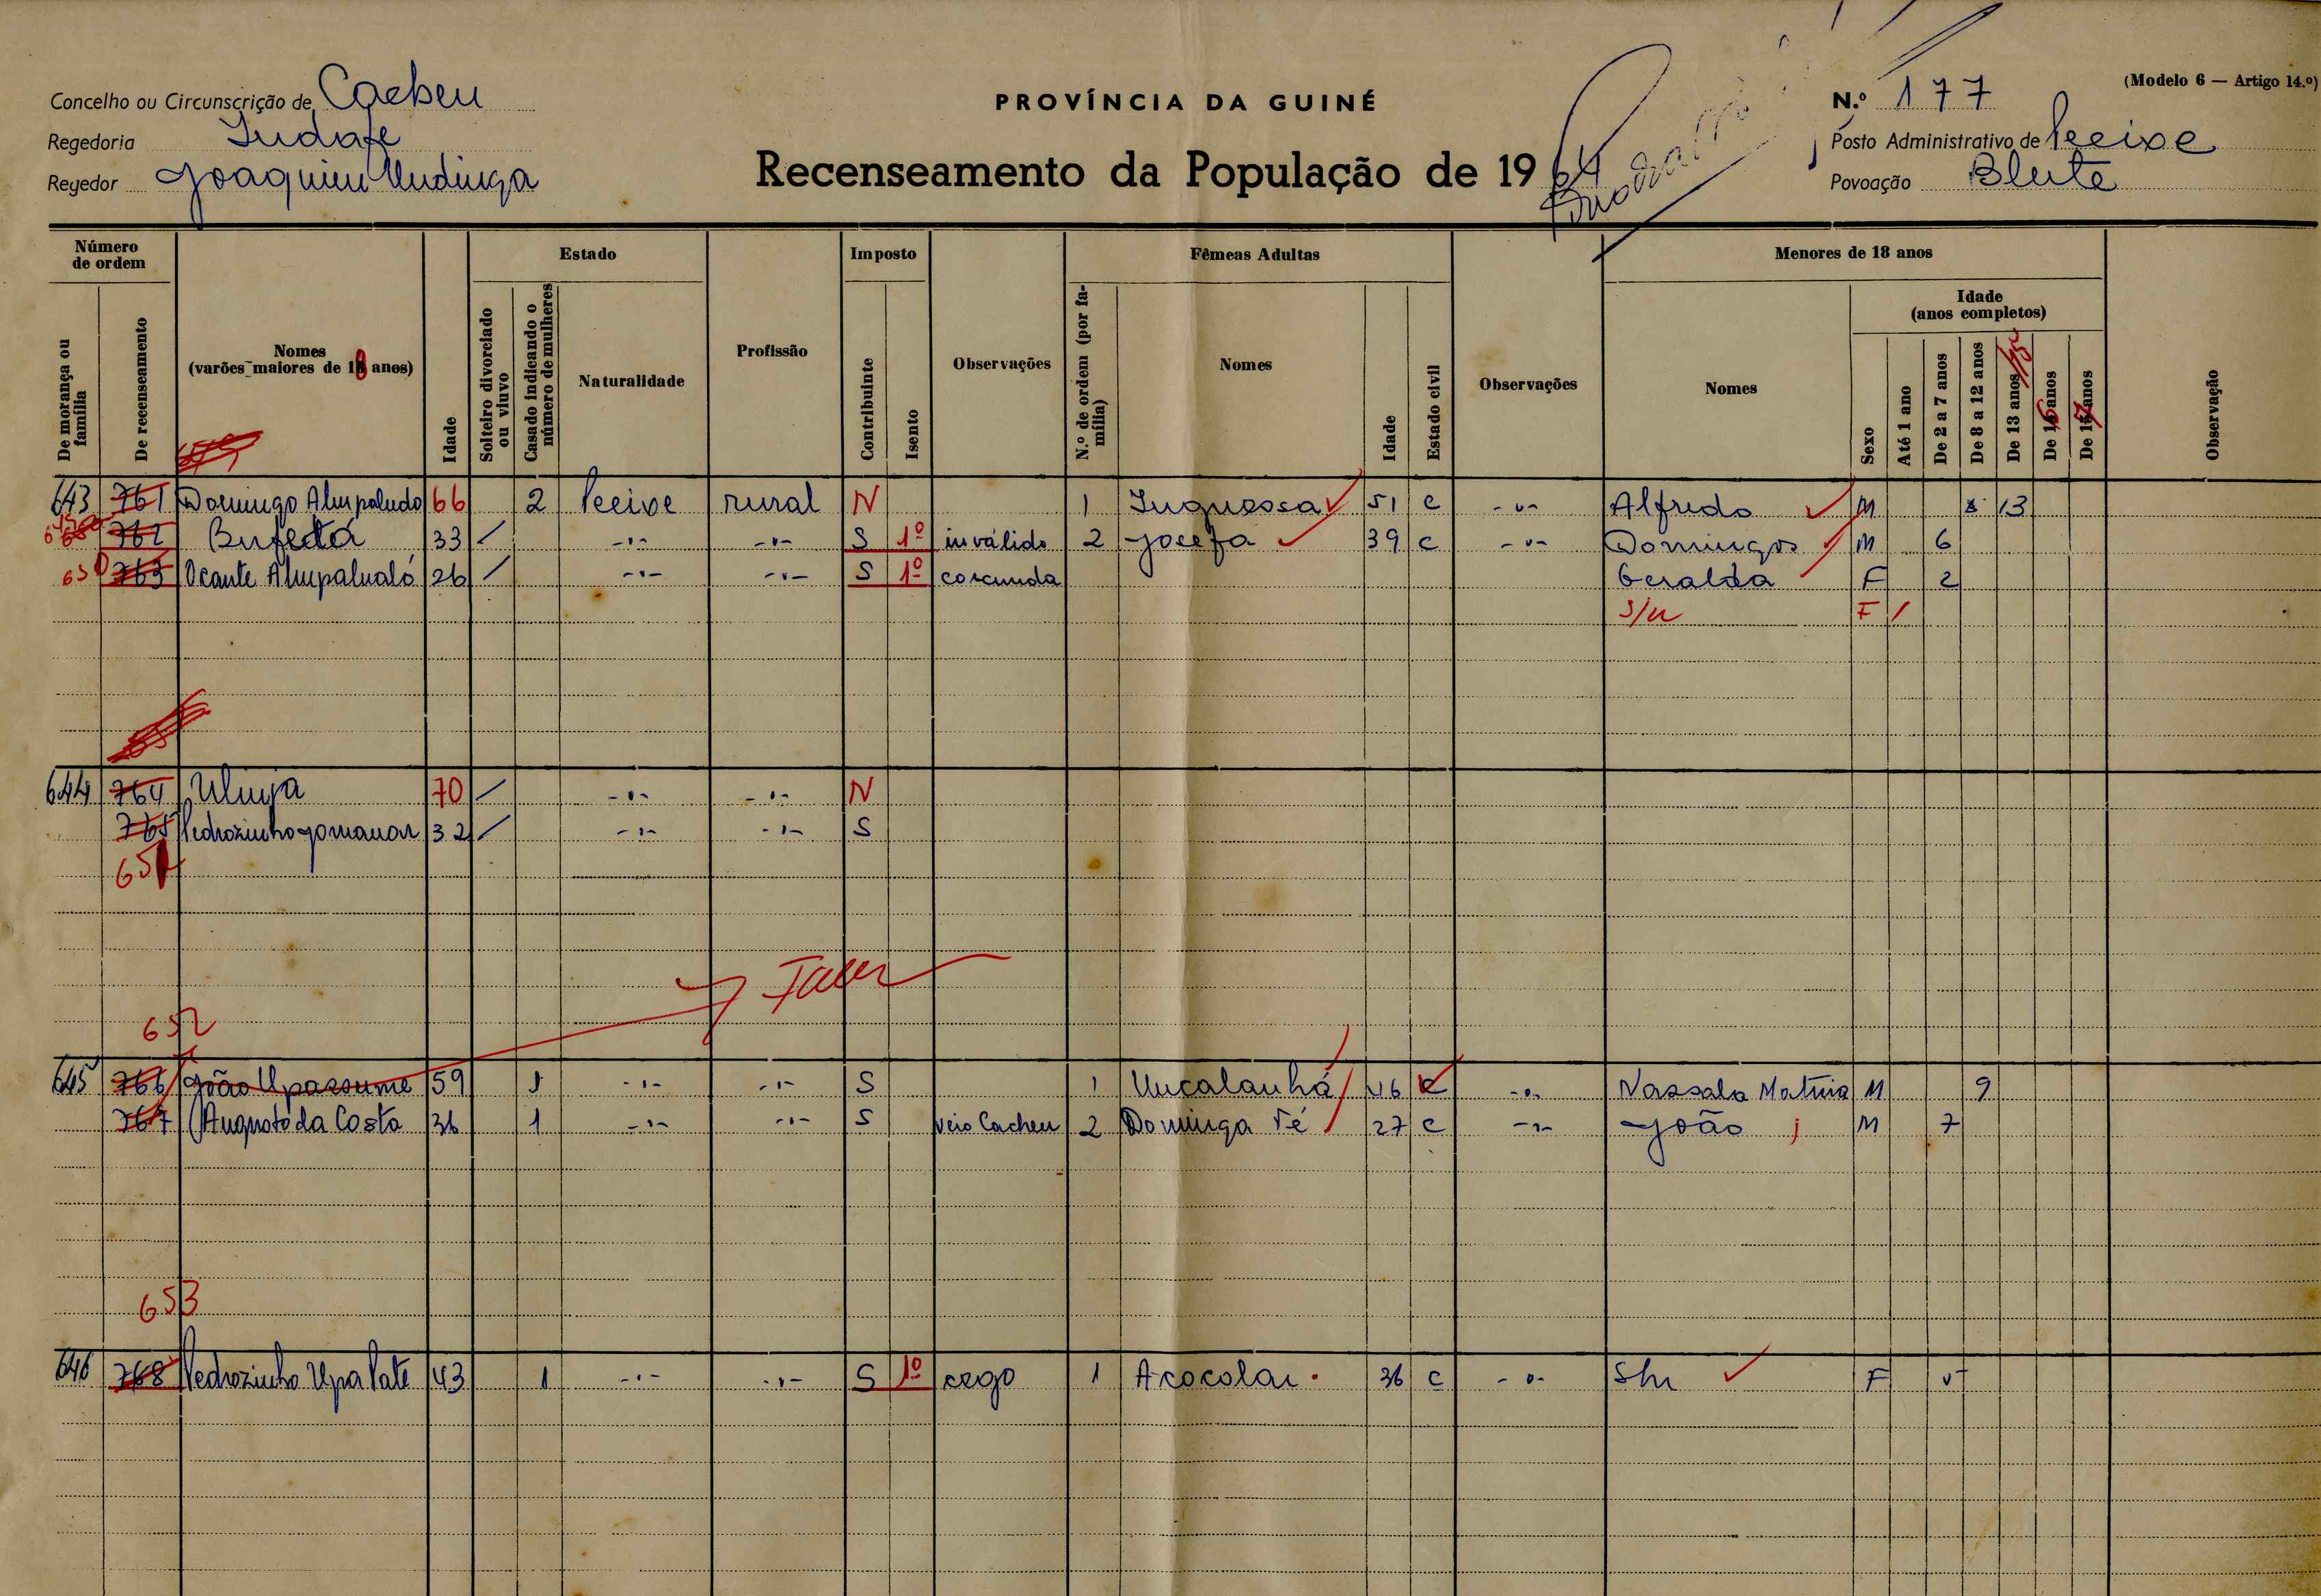 Concelho ou Circunscrição de Cacheu
Regedoria Indafe
Regedor Joaquim Undinga
PROVÍNCIA DA GUINÉ
Recenseamento da População de 1964
(Modelo 6 — Artigo 14.º)
N.º 177
Posto Administrativo de Pecixe
Povoação Blute
Número de ordem
De morança ou família
De recenseamento
Nomes (varões maiores de 18 anos)
Idade
Estado
Solteiro divorciado ou viuvo
Casado indicando o número de mulheres
Naturalidade
Profissão
Imposto
Contribuinte
Isento
Observações
Fêmeas Adultas
N.º de ordem (por família)
Nomes
Idade
Estado civil
Observações
Menores de 18 anos
Nomes
Idade (anos completos)
Sexo
Até 1 ano
De 2 a 7 anos
De 8 a 12 anos
De 13 anos
De 16 anos
De 17 anos
Observação
643 761 Domingo Ahupaludo 66 2 Pecixe rural N 1 Inquossa 51 c -"- Alfredo M 13
762 Bufetá 33 / -"- -"- S 1º inválido 2 Josefa 39 c -"- Domingos M 6
650 763 Ocante Ahupalualó 26 / -"- -"- S 1º corcunda Geralda F 2
S/n F /
644 764 Uluja 70 / -"- -"- N
765 Pedrozinho Gomanan 32 / -"- -"- S
651
Faleu
652
645 766 João Upassumé 59 1 -"- -"- S 1 Uncalanhá 46 c -"- Nassala Matuia M 9
767 Augusto da Costa 36 1 -"- -"- S Veio Cacheu 2 Dominga Té 27 c -"- João M 7
653
646 768 Pedrozinho Upa Late 43 1 -"- -"- S 1º cego 1 Acocolai 36 c -"- S/n F